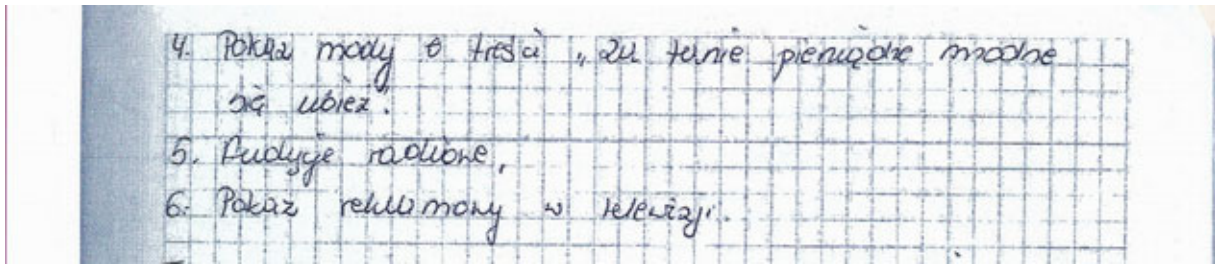 4. Pokaz mody o treści „za tanie pieniądze modnie
się ubierz".
5. Audycje radiowe,
6. Pokaz reklamowy w telewizji.